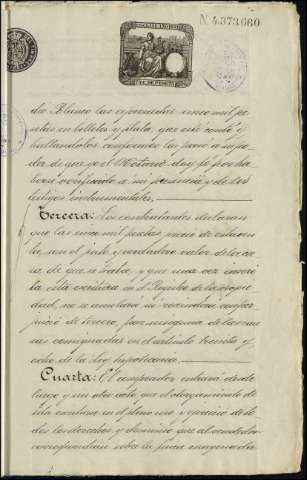 N. 4.373.660
do Blanco las expresadas cinco mil pe-
setas en billetes y plata, que este contó y
hallándolas conformes las pasó a su po-
der de que yo el Notario doy fé por ha-
berse verificado a mi presencia y de los
testigos instrumentales.
Tercera: Los contratantes declaran
que las cinco mil pesetas, precio de esta ven-
ta, son el justo y verdadero valor de la co-
sa de que se trata, y que una vez inscri-
ta esta escritura en el Registro de la propie-
dad, no se anulará ni rescindirá con per-
juicio de tercero, por ninguna de las cau-
sas consignadas en el artículo treinta y
ocho de la ley hipotecaria.
Cuarta: El comprador entrará desde
luego y sin otro acto que el otorgamiento de
esta escritura en el pleno uso y ejercicio de to-
dos los derechos y dominio que al vendedor
correspondian sobre la finca enagenada